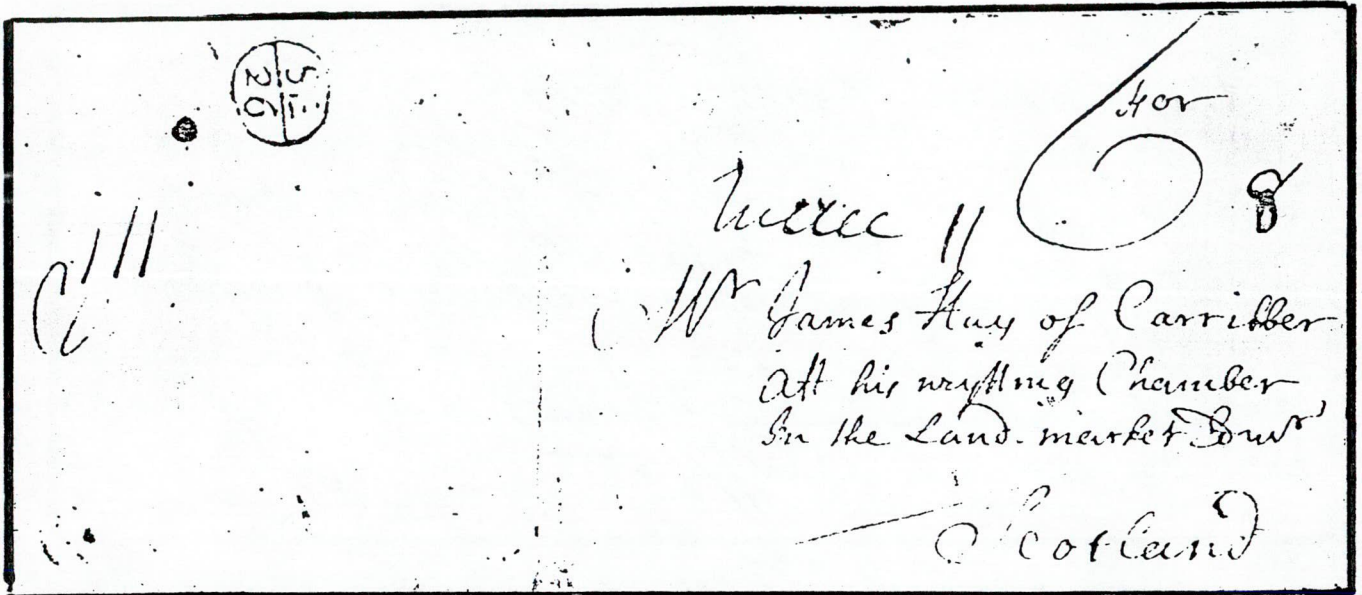 For
Mr James Hay of Carribber
Att his wrytting Chamber
In the Land market Edinr
Scotland